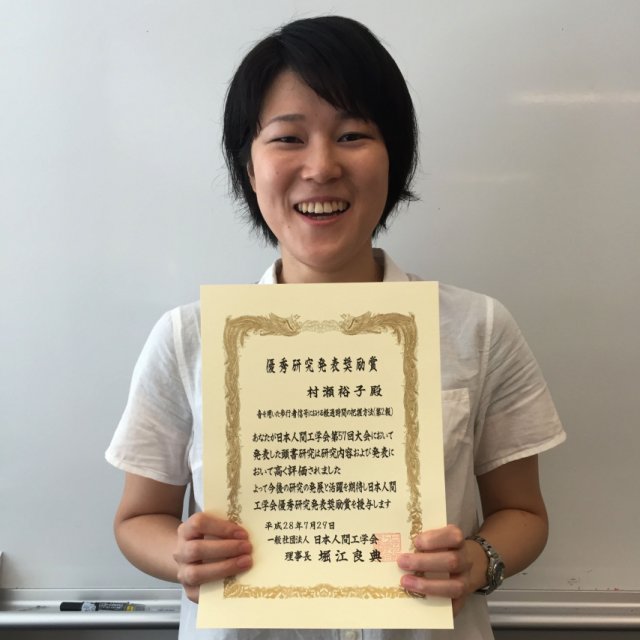 優秀研究発表奨励賞
村瀬裕子殿
音を用いた歩行者信号における経過時間の把握方法(第2報)
あなたが日本人間工学会第57回大会において
発表した頭書研究は研究内容および発表に
おいて高く評価されました
よって今後の研究の発展と活躍を期待し日本人間
工学会優秀研究発表奨励賞を授与します
平成28年7月29日
一般社団法人 日本人間工学会
理事長 堀江良典